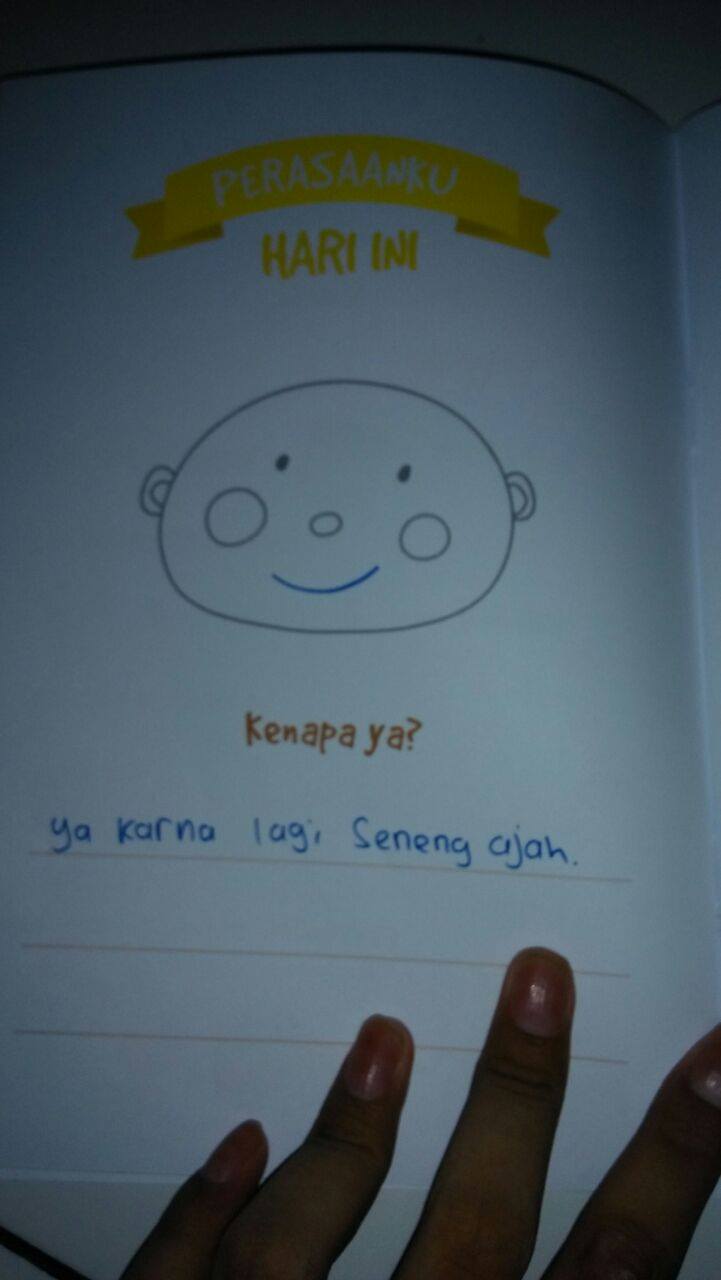 PERASAANKU
HARI INI
Kenapa ya?
ya karna lagi Seneng ajah.